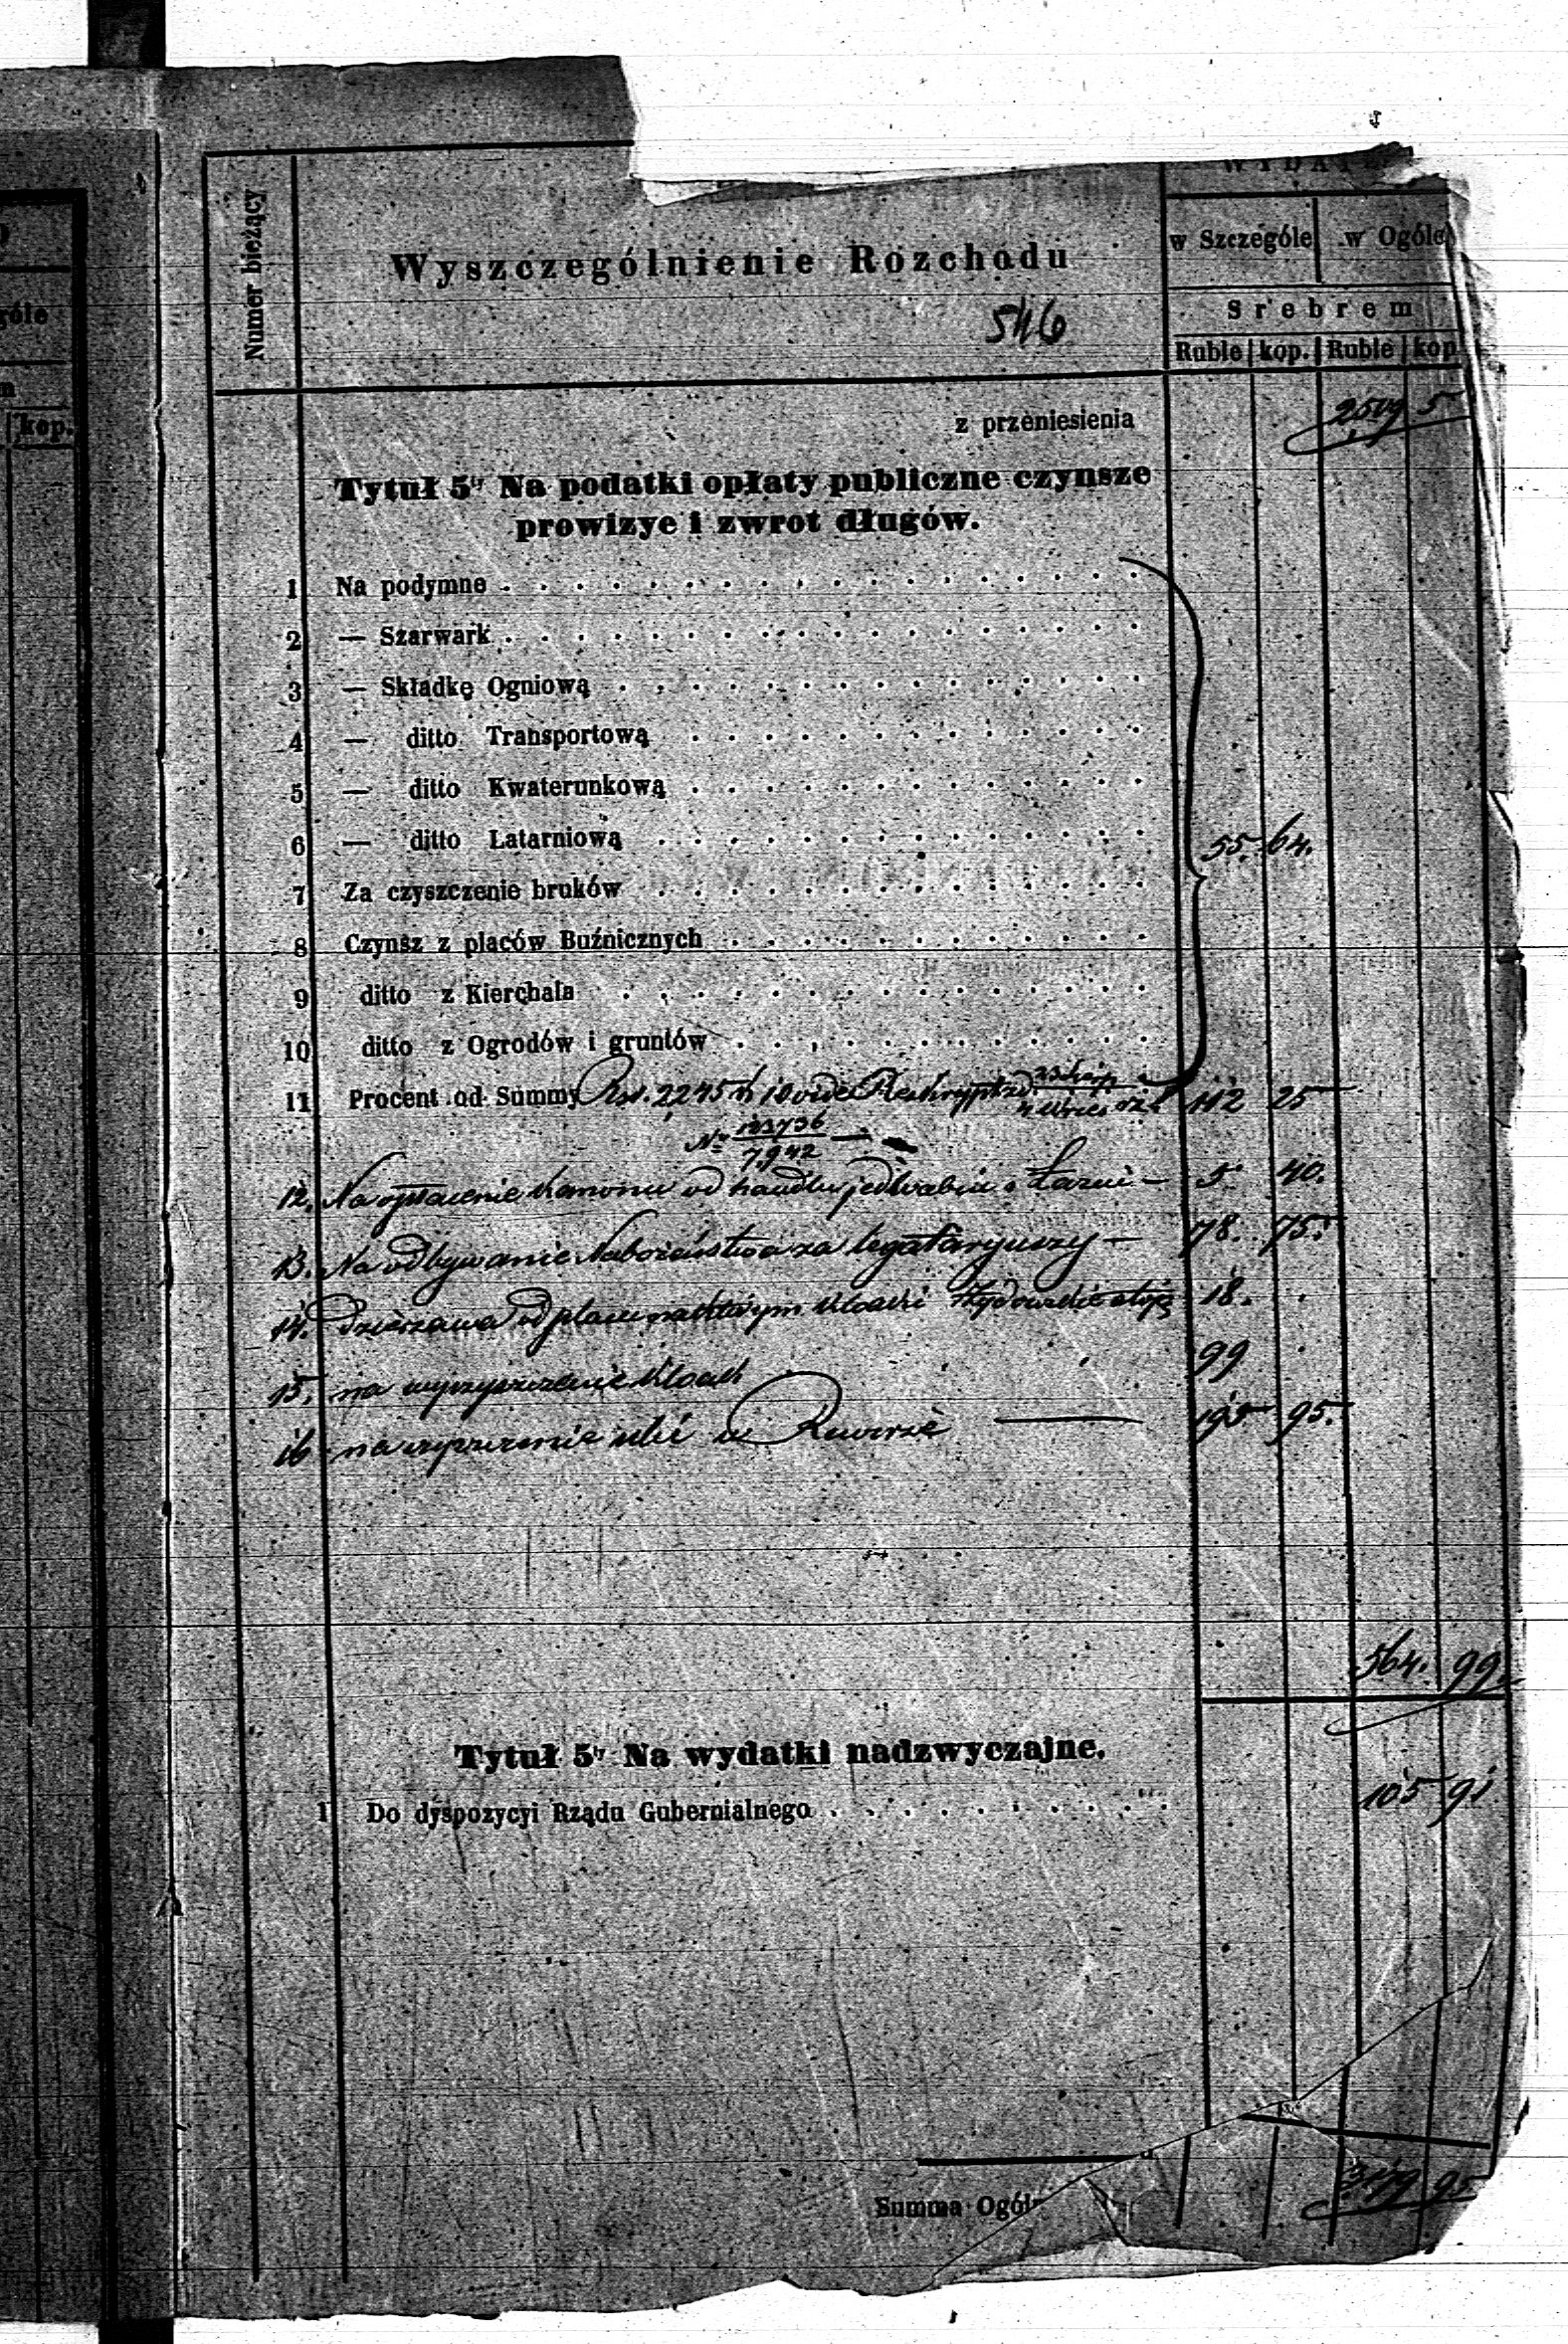 WYDAT
Numer bieżący
Wyszczególnienie Rozchodu
w Szczególe w Ogóle
546
Srebrem
Ruble kop. Ruble kop
góle
m
kop.
z przeniesienia 2509 5
Tytuł 5ty Na podatki opłaty publiczne czynsze
prowizye i zwrot długów.
1 Na podymne
2 — Szarwark
3 — Składkę Ogniową
4 — ditto Transportową
5 — ditto Kwaterunkową
6 — ditto Latarniową 55. 64.
7 Za czyszczenie bruków
8 Czynsz z placów Buźnicznych
9 ditto z Kierchala
10 ditto z Ogrodów i gruntów
11 Procent od Summy Rsr. 2245 k 10 vide Reskrypt z d. 112 25
No 123736
7,942
12. Na opłacenie Kanonu od handlu jedwabiu i Łazni — 5. 40.
13. Na odbywanie Nabożeństwa za legataryuszy — 78. 75.
14. Dzierzawa od placu na którym kloaki Żydowskie stoją 18.
15. na wyczyszczenie kloak 99
16 na czyszczenie ulic w 195 95.
564. 99
Tytuł 5ty Na wydatki nadzwyczajne.
1 Do dyspozycyi Rządu Gubernialnego 105 91
Summa Ogól 3179 95